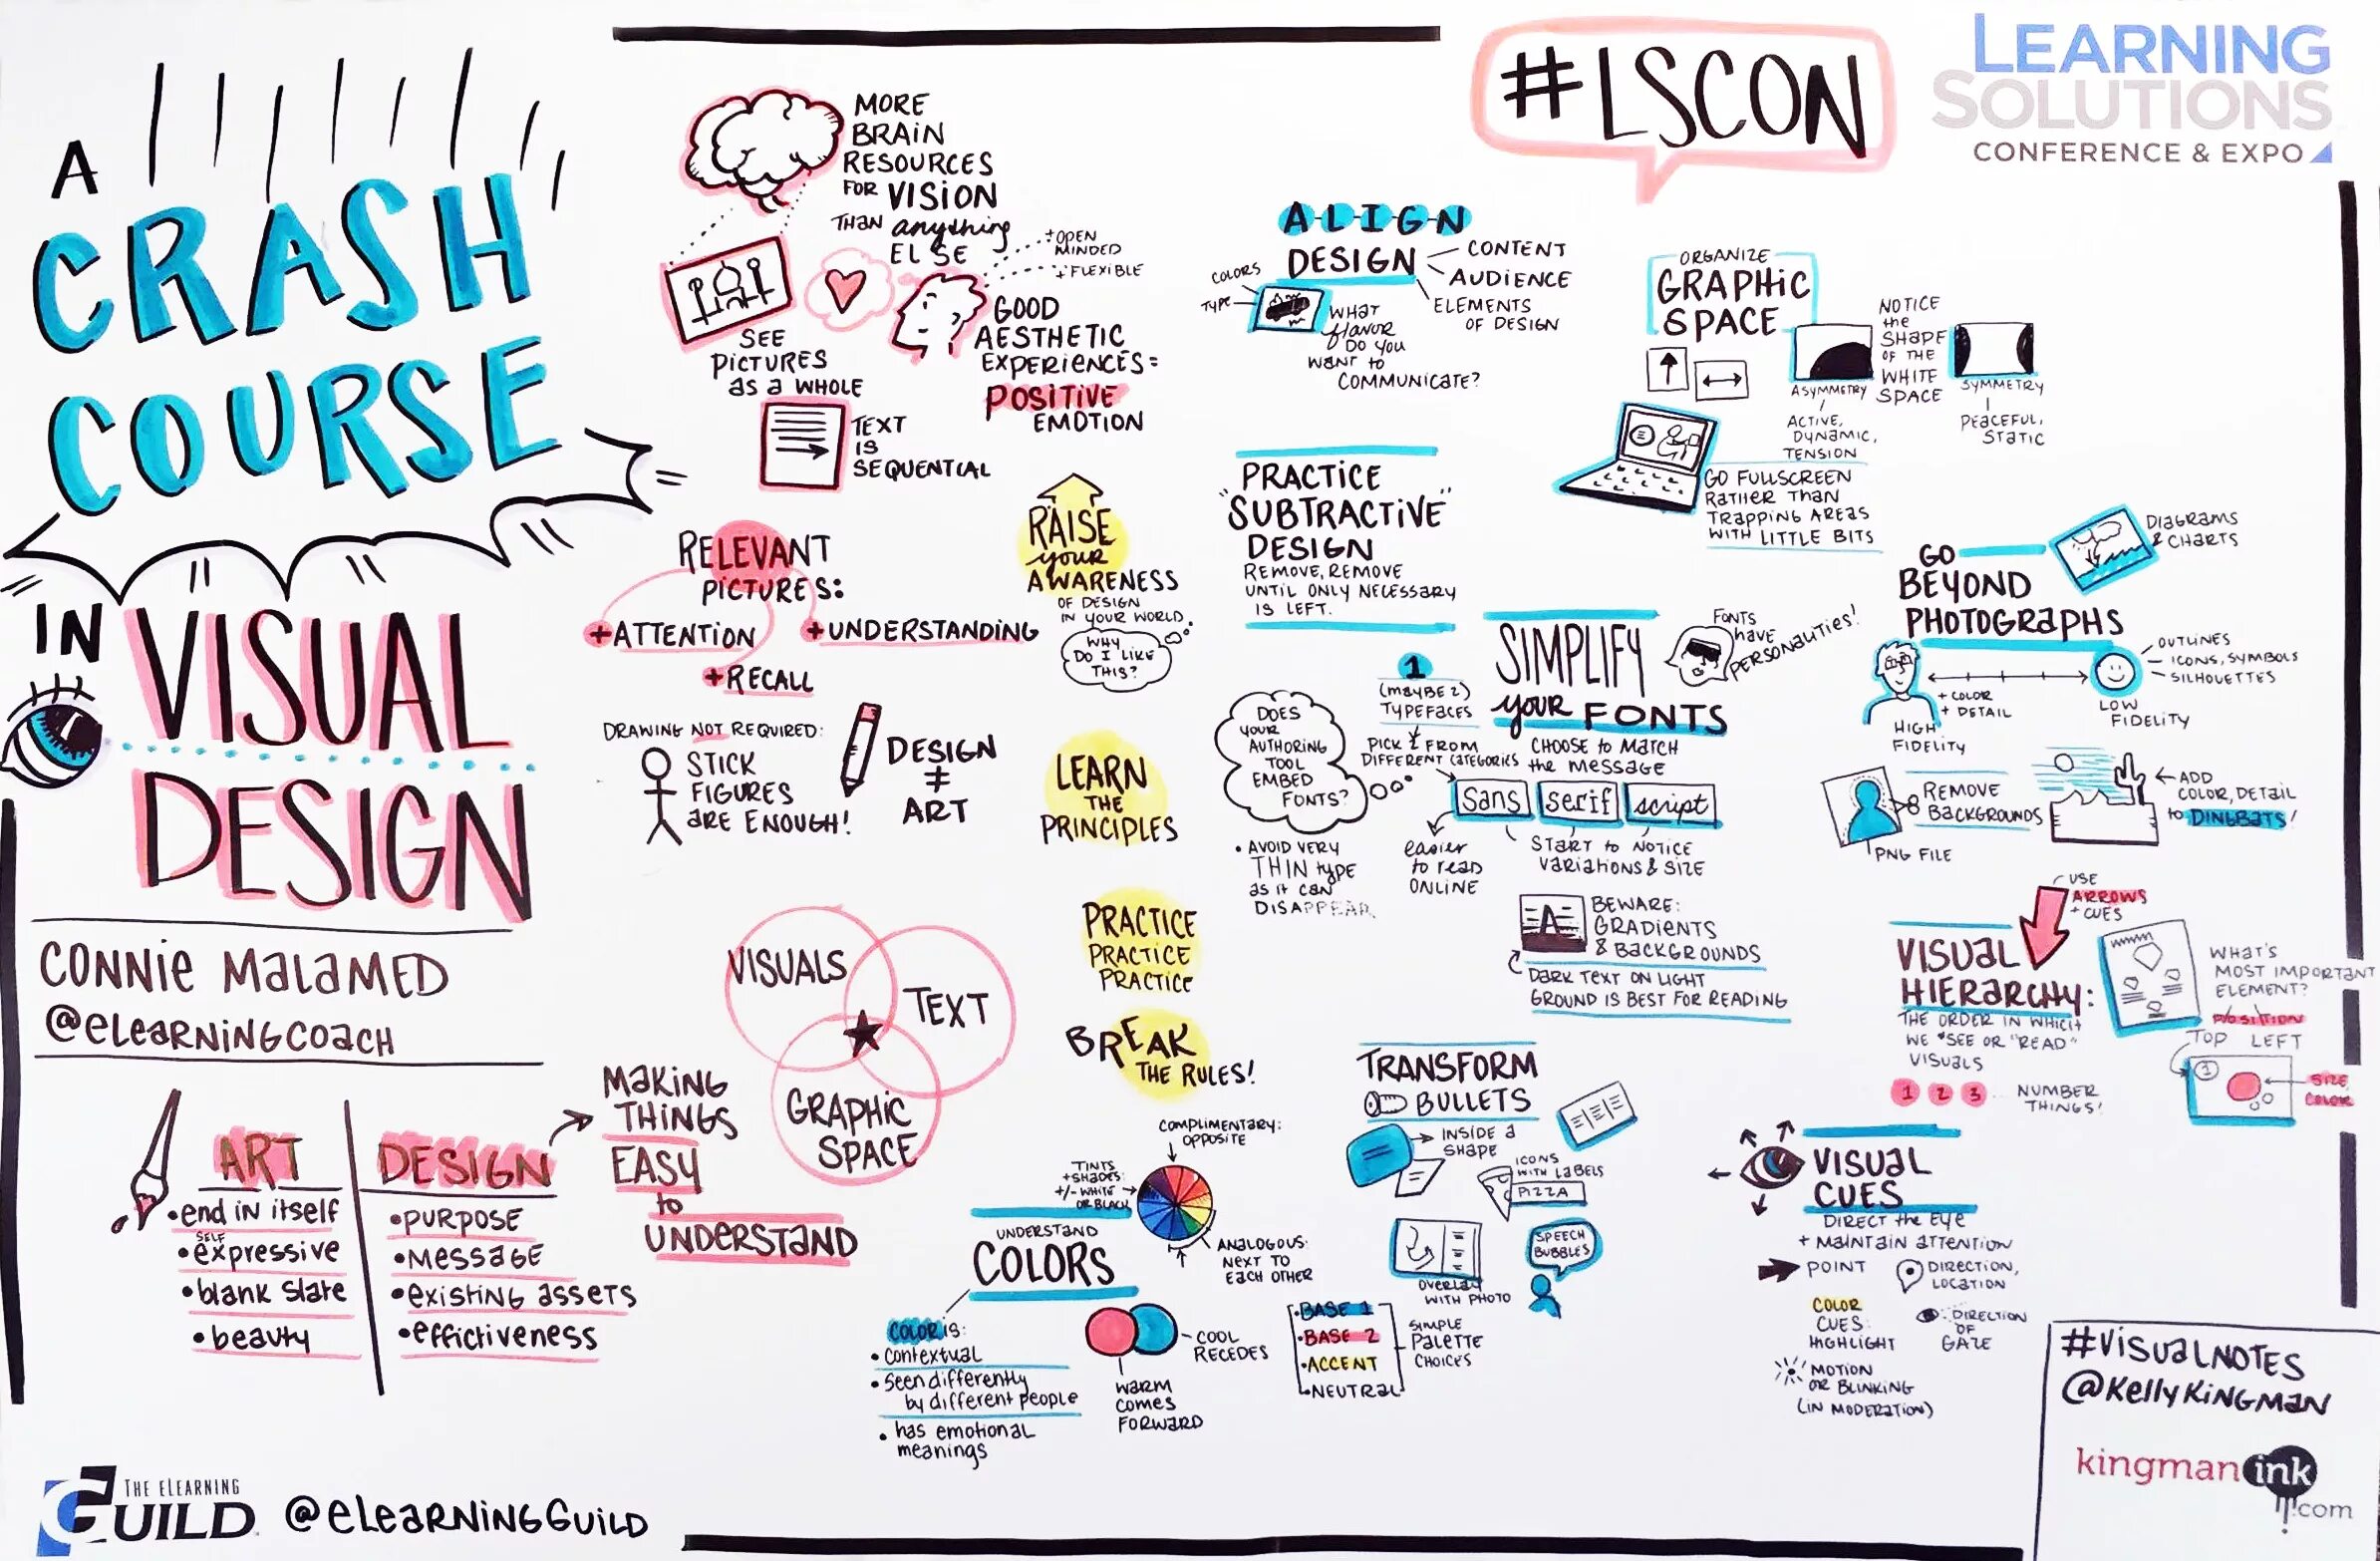 A
CRASH
COURSE
IN
VISUAL
DESIGN
CONNIE MALAMED
@eLEARNINGCOACH
ART
•end in itself
SELF
•expressive
•blank slate
•beauty
DESIGN
•PURPOSE
•MESSAGE
•existing assets
•effictiveness
MAKING
THINGS
EASY
to
UNDERSTAND
THE ELEARNING
GUILD
@eLEARNINGGUILD
MORE
BRAIN
RESOURCES
FOR VISION
THAN anything
ELSE
SEE
PICTURES
as a WHOLE
TEXT
IS
SEQUENTIAL
+OPEN
MINDED
+FLEXIBLE
GOOD
AESTHETIC
EXPERIENCES=
POSITIVE
EMOTION
RELEVANT
PICTURES:
+ATTENTION
+UNDERSTANDING
+RECALL
DRAWING NOT REQUIRED:
STICK
FIGURES
are ENOUGH!
DESIGN
≠
ART
VISUALS
TEXT
GRAPHIC
SPACE
RAISE
your
AWARENESS
OF DESIGN
IN YOUR WORLD.
WHY
DO I LIKE
THIS?
LEARN
THE
PRINCIPLES
PRACTICE
PRACTICE
PRACTICE
BREAK
THE RULES!
COMPLIMENTARY:
OPPOSITE
TINTS
+SHADES:
+/- WHITE
OR BLACK
ANALOGOUS:
NEXT TO
EACH OTHER
UNDERSTAND
COLORS
COLOR IS:
• contextual
• seen differently
by different people
• has emotional
meanings
COOL
RECEDES
WARM
comes
FORWARD
•BASE 1
•BASE 2
•ACCENT
•NEUTRAL
SIMPLE
PALETTE
CHOICES
#LSCON
LEARNING
SOLUTIONS
CONFERENCE & EXPO
ALIGN
DESIGN
CONTENT
AUDIENCE
ELEMENTS
OF DESIGN
COLORS
TYPE
WHAT
flavor
DO YOU
WANT to
COMMUNICATE?
PRACTICE
"SUBTRACTIVE"
DESIGN
REMOVE, REMOVE
UNTIL ONLY NECESSARY
IS LEFT.
ORGANIZE
GRAPHIC
SPACE
NOTICE
the
SHAPE
OF THE
WHITE
SPACE
ASYMMETRY
ACTIVE,
DYNAMIC,
TENSION
SYMMETRY
PEACEFUL,
STATIC
GO FULLSCREEN
RATHER THAN
TRAPPING AREAS
WITH LITTLE BITS
SIMPLIFY
your FONTS
FONTS
have
PERSONALITIES!
1
(MAYBE 2)
TYPEFACES
PICK 1 FROM
DIFFERENT CATEGORIES
CHOOSE to MATCH
the MESSAGE
Sans
serif
script
easier
to read
ONLINE
START to NOTICE
VARIATIONS & SIZE
DOES
YOUR
AUTHORING
TOOL
EMBED
FONTS?
• AVOID VERY
THIN TYPE
as it can
DISAPPEAR
A
BEWARE:
GRADIENTS
& BACKGROUNDS
DARK TEXT ON LIGHT
GROUND IS BEST FOR READING
TRANSFORM
BULLETS
INSIDE a
SHAPE
ICONS
WITH LABELS
PIZZA
OVERLAY
WITH PHOTO
SPEECH
BUBBLES
GO
BEYOND
PHOTOGRAPHS
DIAGRAMS
& CHARTS
OUTLINES
ICONS, SYMBOLS
SILHOUETTES
+ COLOR
+ DETAIL
HIGH
FIDELITY
LOW
FIDELITY
REMOVE
BACKGROUNDS
PNG FILE
ADD
COLOR, DETAIL
to DINGBATS!
USE
ARROWS
+ CUES
VISUAL
HIERARCHY:
THE ORDER IN WHICH
WE "SEE OR "READ"
VISUALS
1 2 3 NUMBER
THINGS!
WHAT'S
MOST IMPORTANT
ELEMENT?
POSITION
TOP LEFT
1
SIZE
COLOR
VISUAL
CUES
DIRECT the EYE
+ MAINTAIN ATTENTION
POINT
DIRECTION,
LOCATION
COLOR
CUES:
HIGHLIGHT
DIRECTION
OF
GAZE
MOTION
OR BLINKING
(IN MODERATION)
#VISUALNOTES
@KELLYKINGMAN
kingmanink
.com